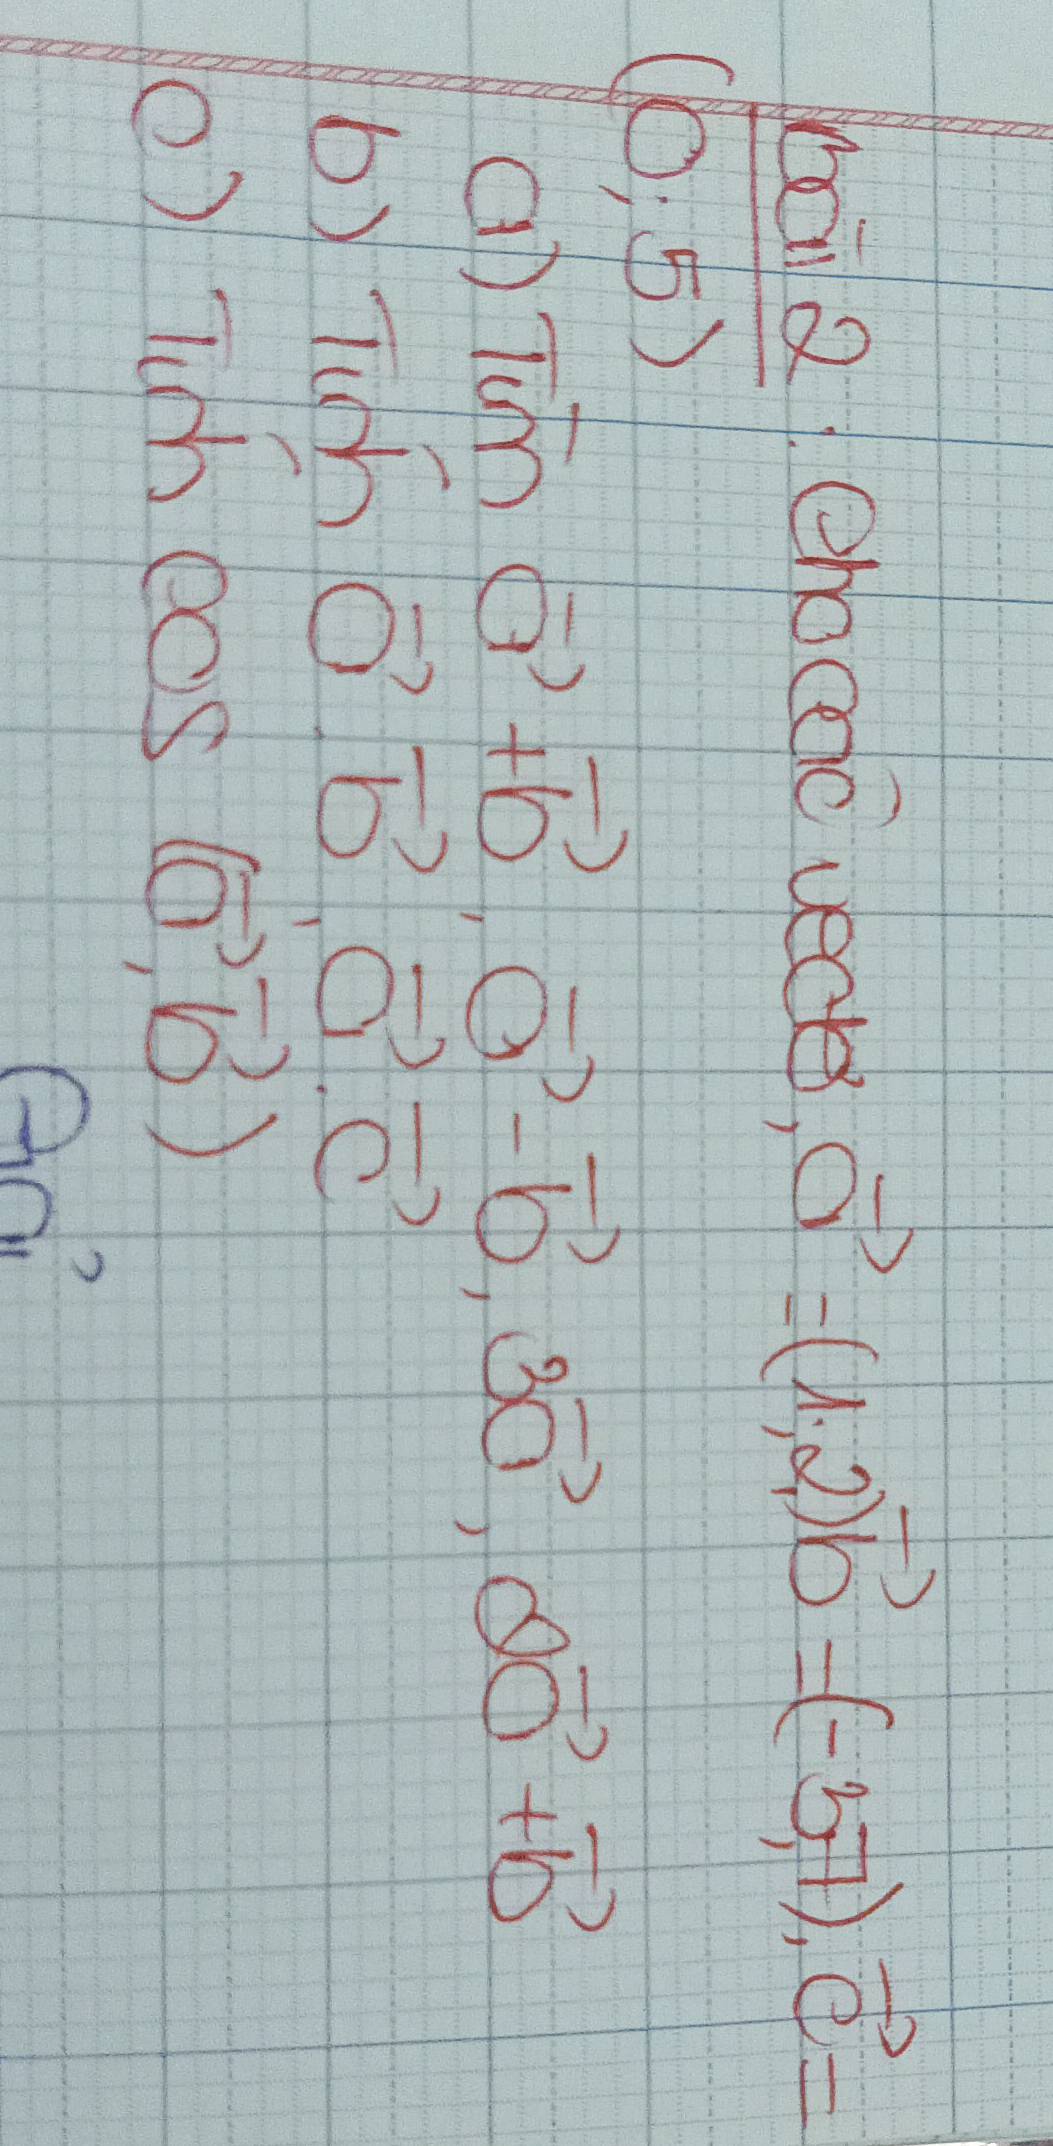 Bài 2: Cho các vectơ, a→ = (1;2) b→ = (-3;7), c→ =
(0;5)
a) Tìm a→ + b→, a→ - b→, 3a→, 8a→ + b→
b) Tính a→.b→, a→.c→
c) Tính cos (a→, b→)
Giải